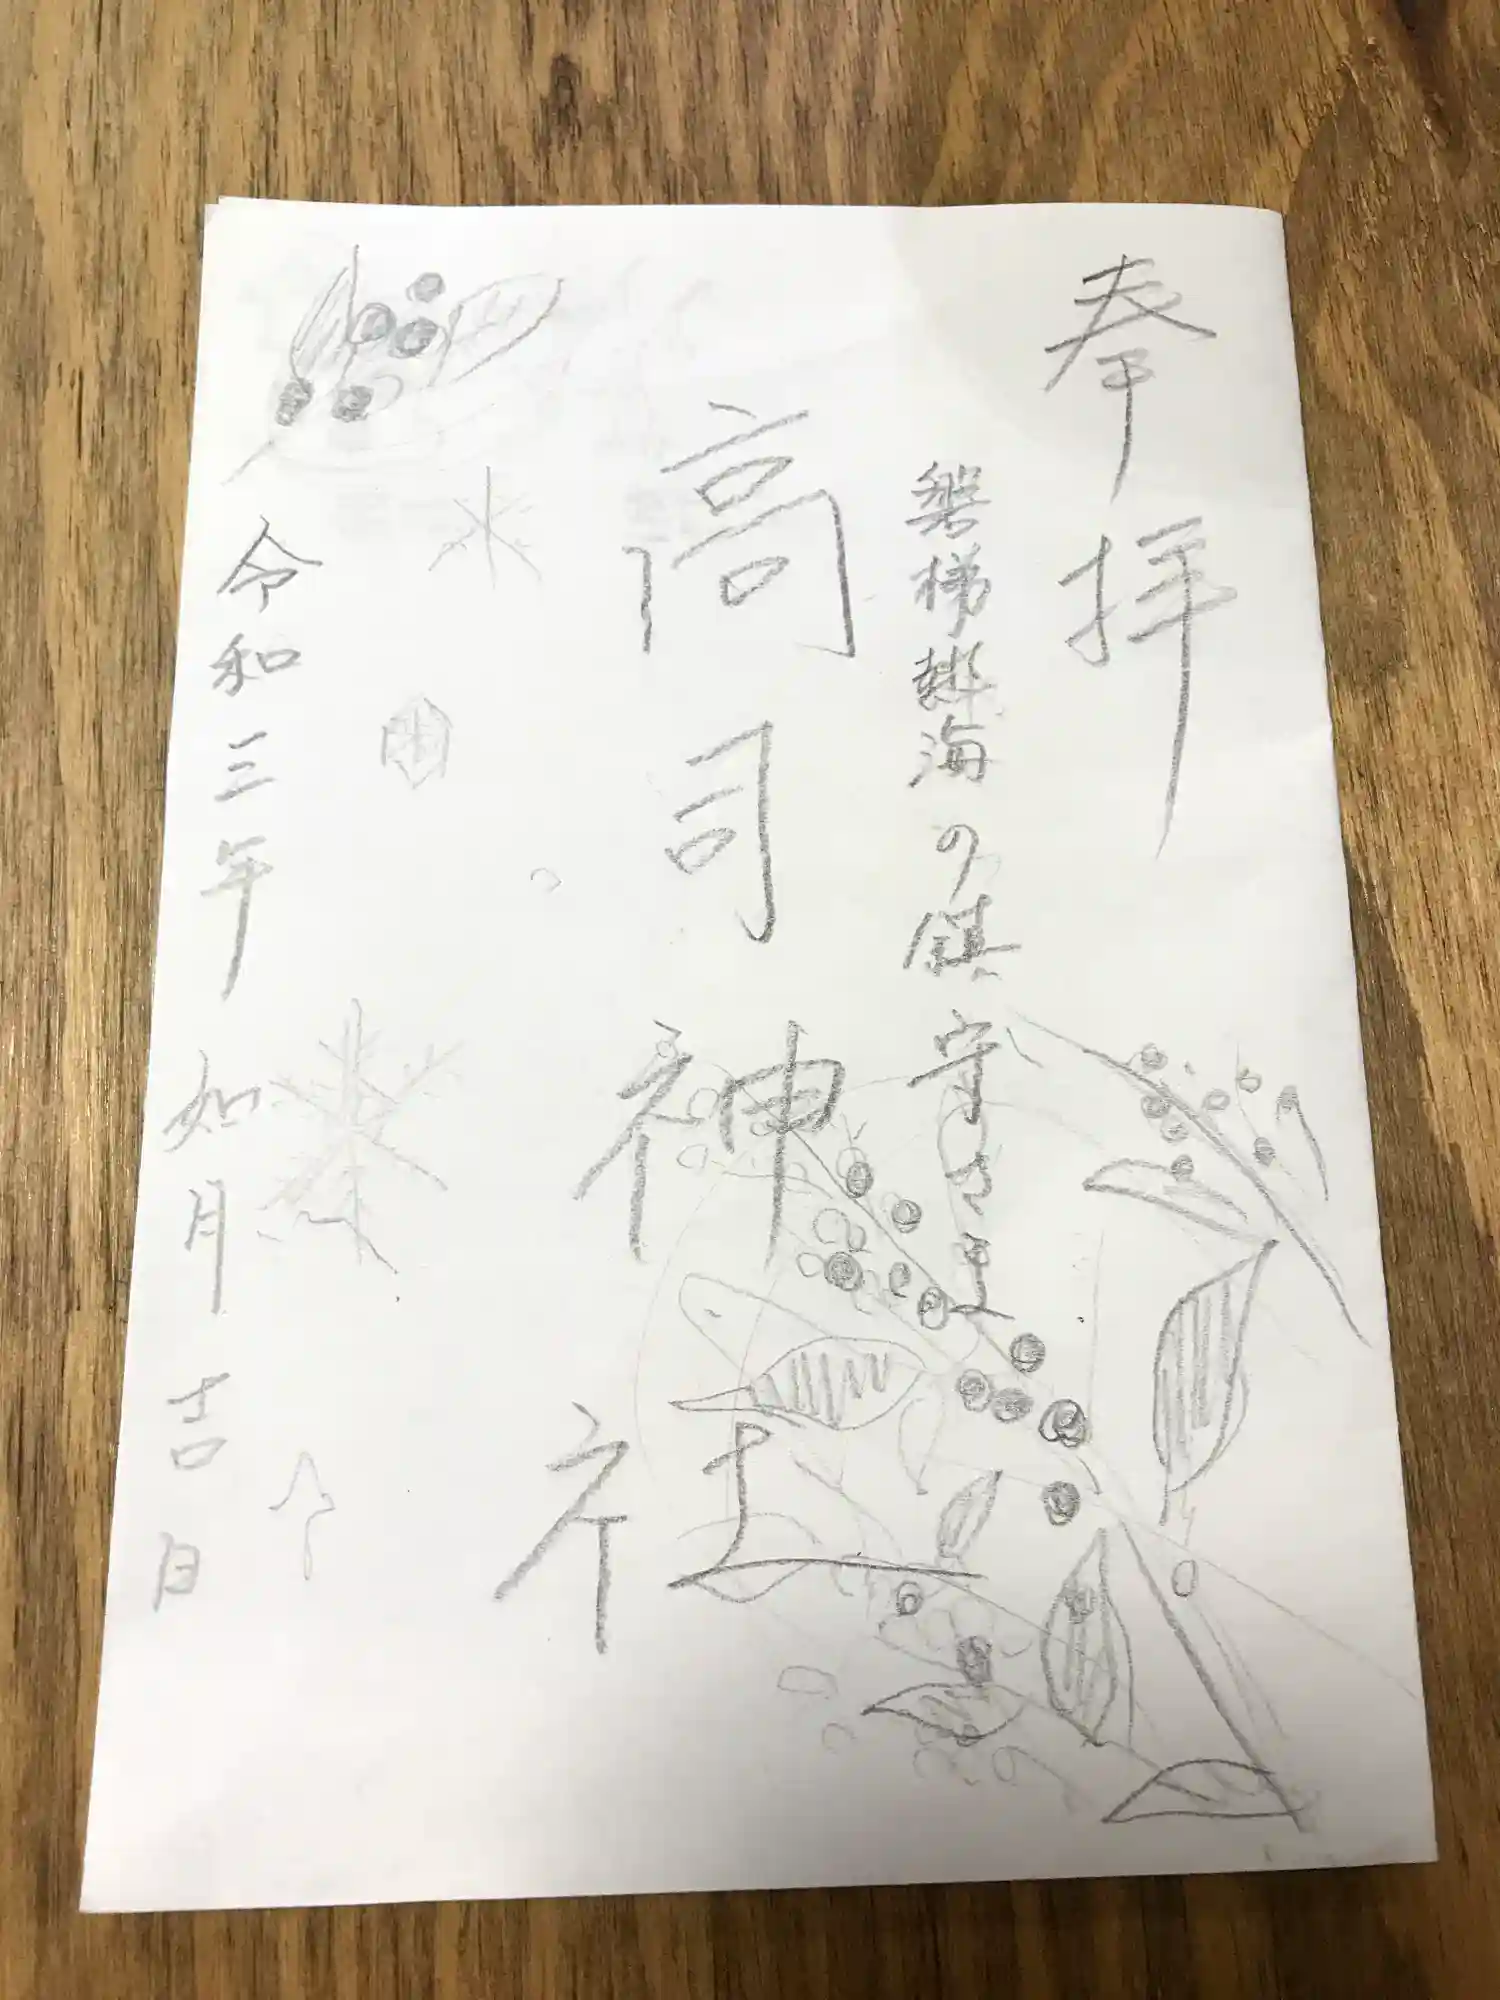 奉拝
磐梯熱海の鎮守さま
高司神社
令和三年如月吉日